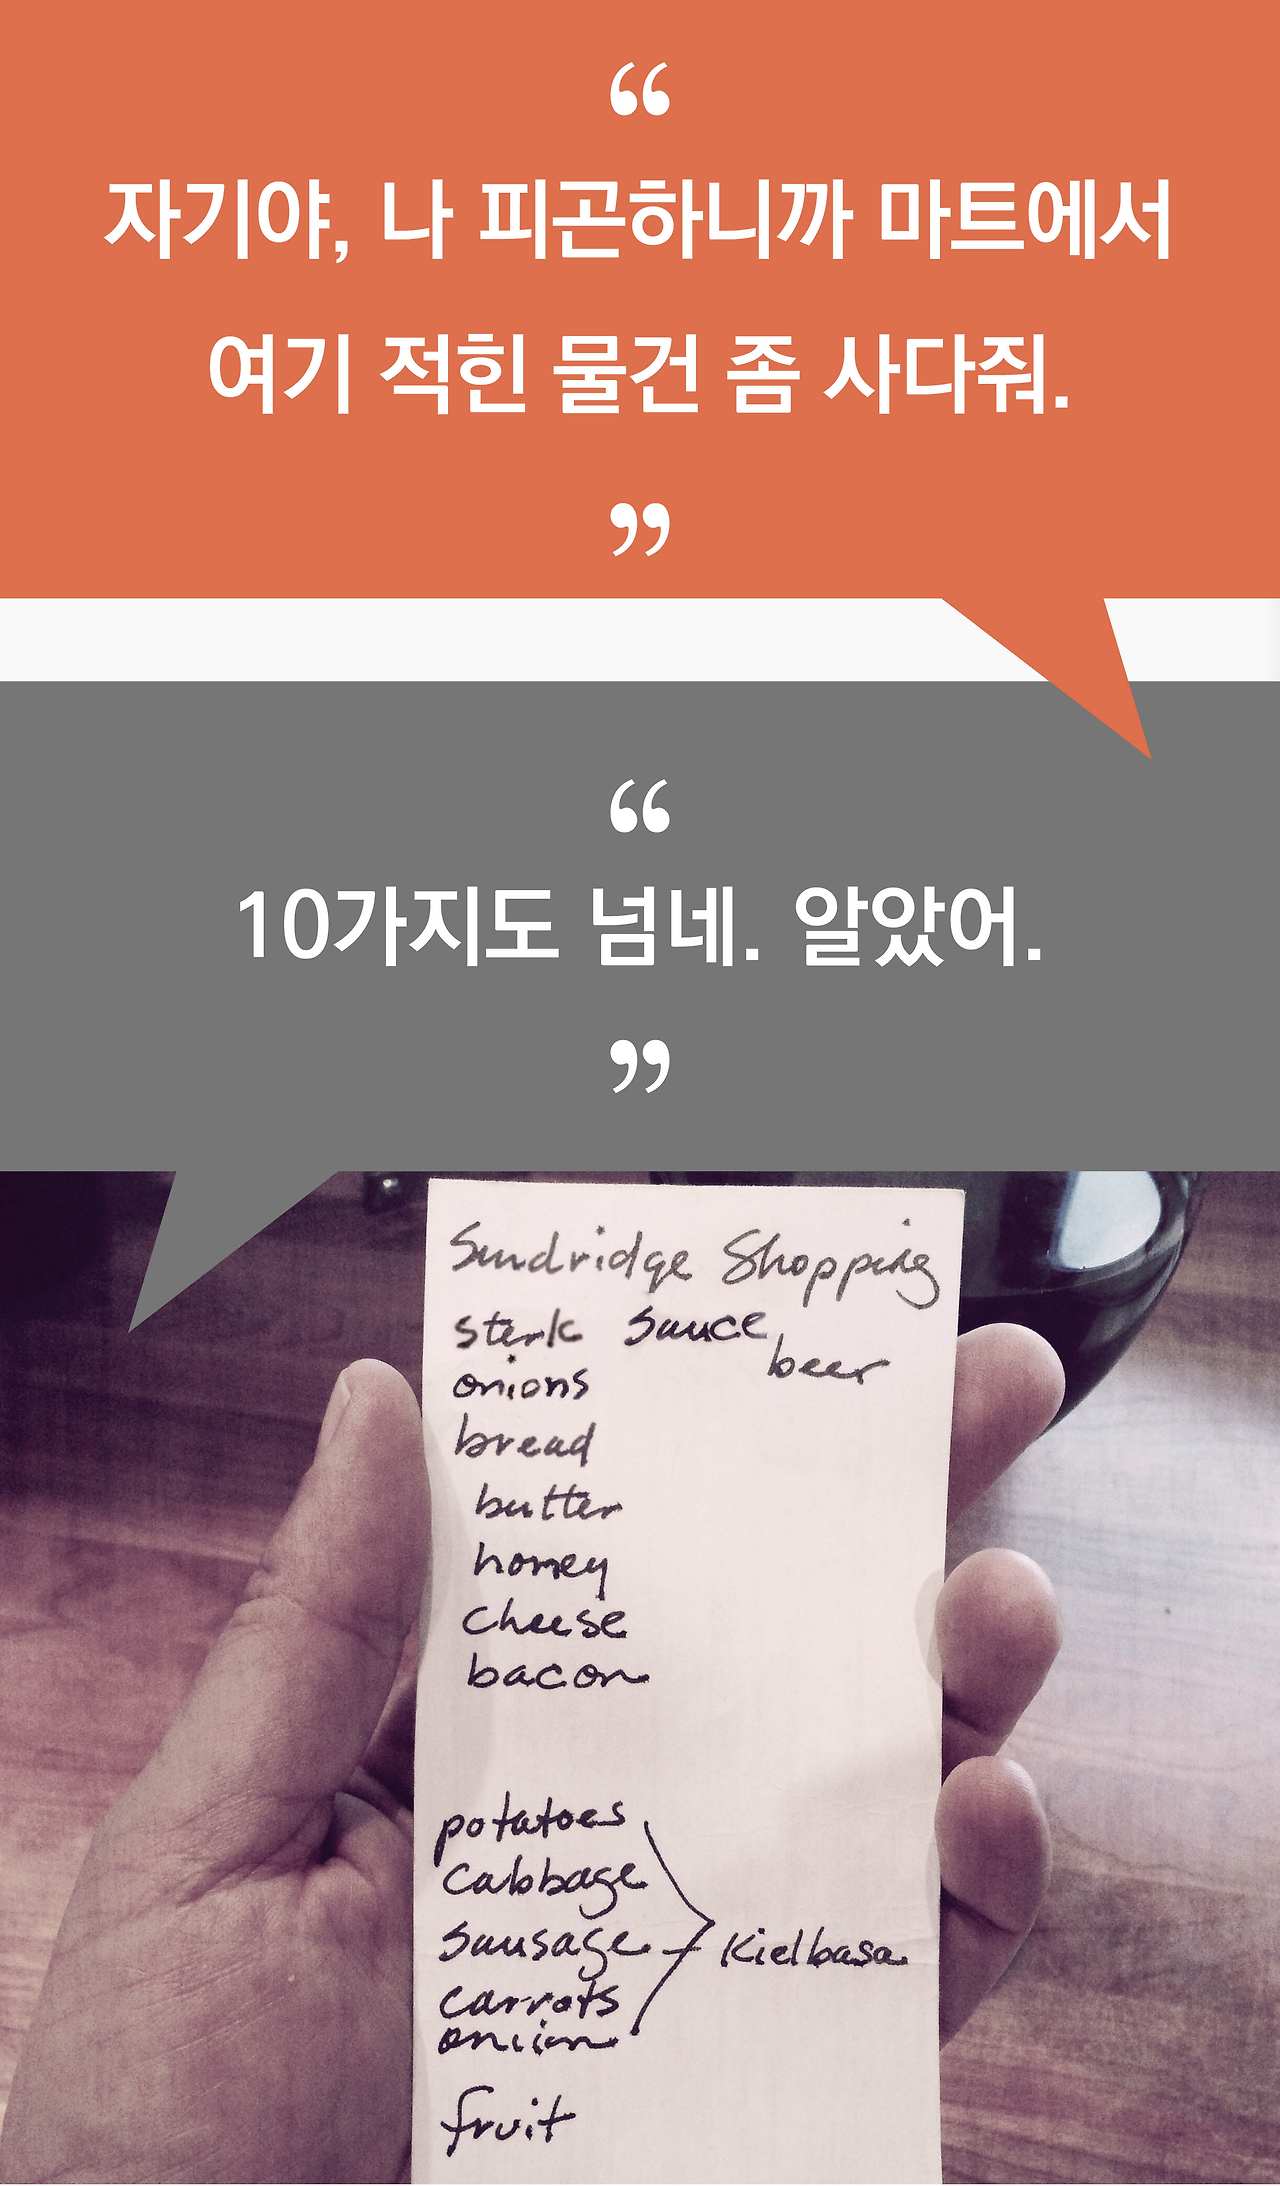 “
자기야, 나 피곤하니까 마트에서
여기 적힌 물건 좀 사다줘.
”
“
10가지도 넘네. 알았어.
”
Sundridge Shopping
steak sauce
beer
onions
bread
butter
honey
cheese
bacon
potatoes
cabbage
sausage Kielbasa
carrots
onion
fruit